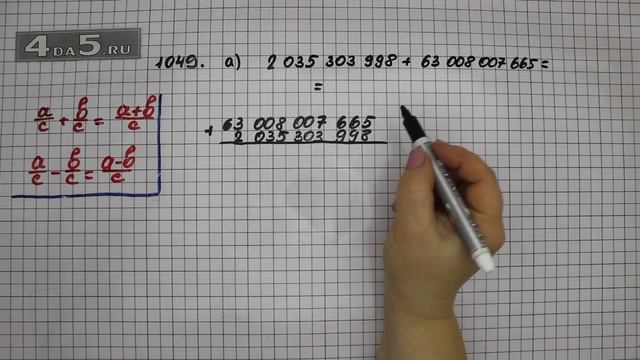 4DA5.RU
1049. а) 2 035 303 998 + 63 008 007 665 =
=
a/c + b/c = a+b/c
a/c - b/c = a-b/c
+ 63 008 007 665
2 035 303 998